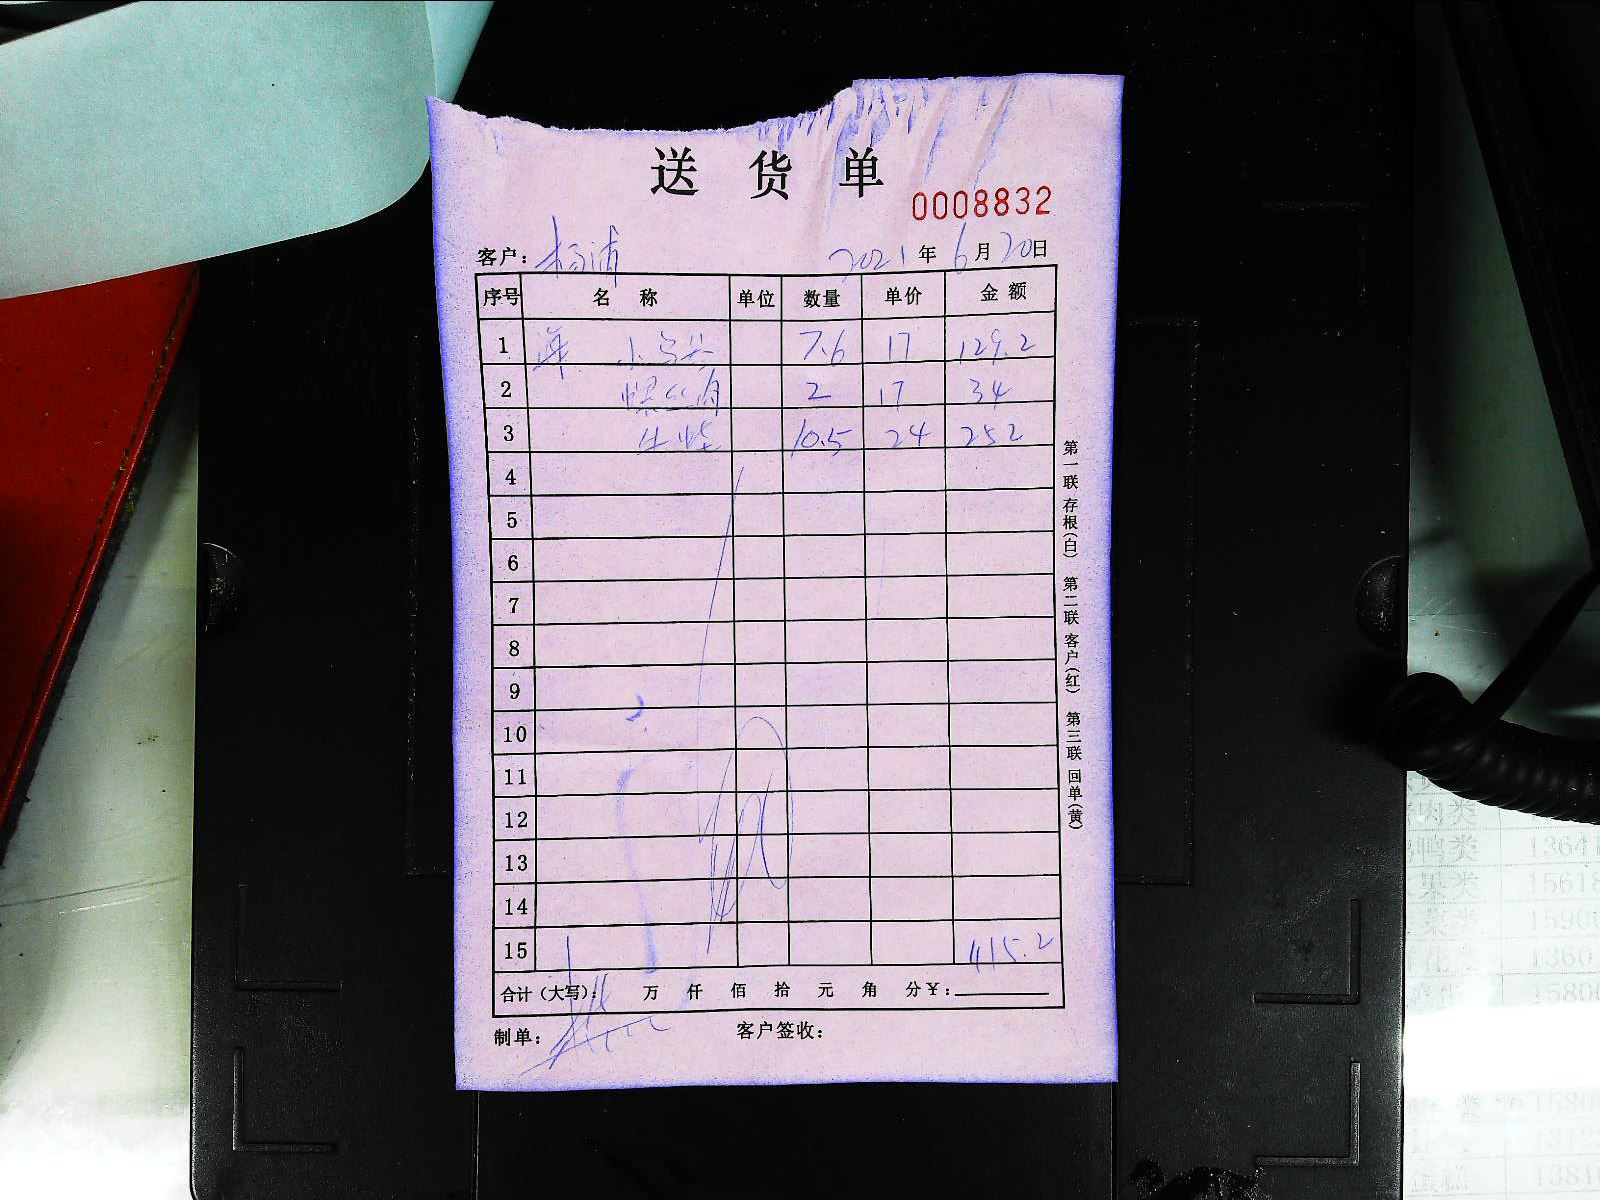 送货单
0008832
客户：杨浦 2021年6月20日
序号 名称 单位 数量 单价 金额
1 7.6 17 129.2
2 螺丝肉 2 17 34
3 10.5 24 252
4
5
6
7
8
9
10
11
12
13
14
15 415.2
合计（大写）： 万 仟 佰 拾 元 角 分￥：
制单： 客户签收：
第一联 存根（白） 第二联 客户（红） 第三联 回单（黄）
肉类
鸭类 13641
果类 15618
菜类 15900
1360
1580
1580
1312
蛋糕 1381